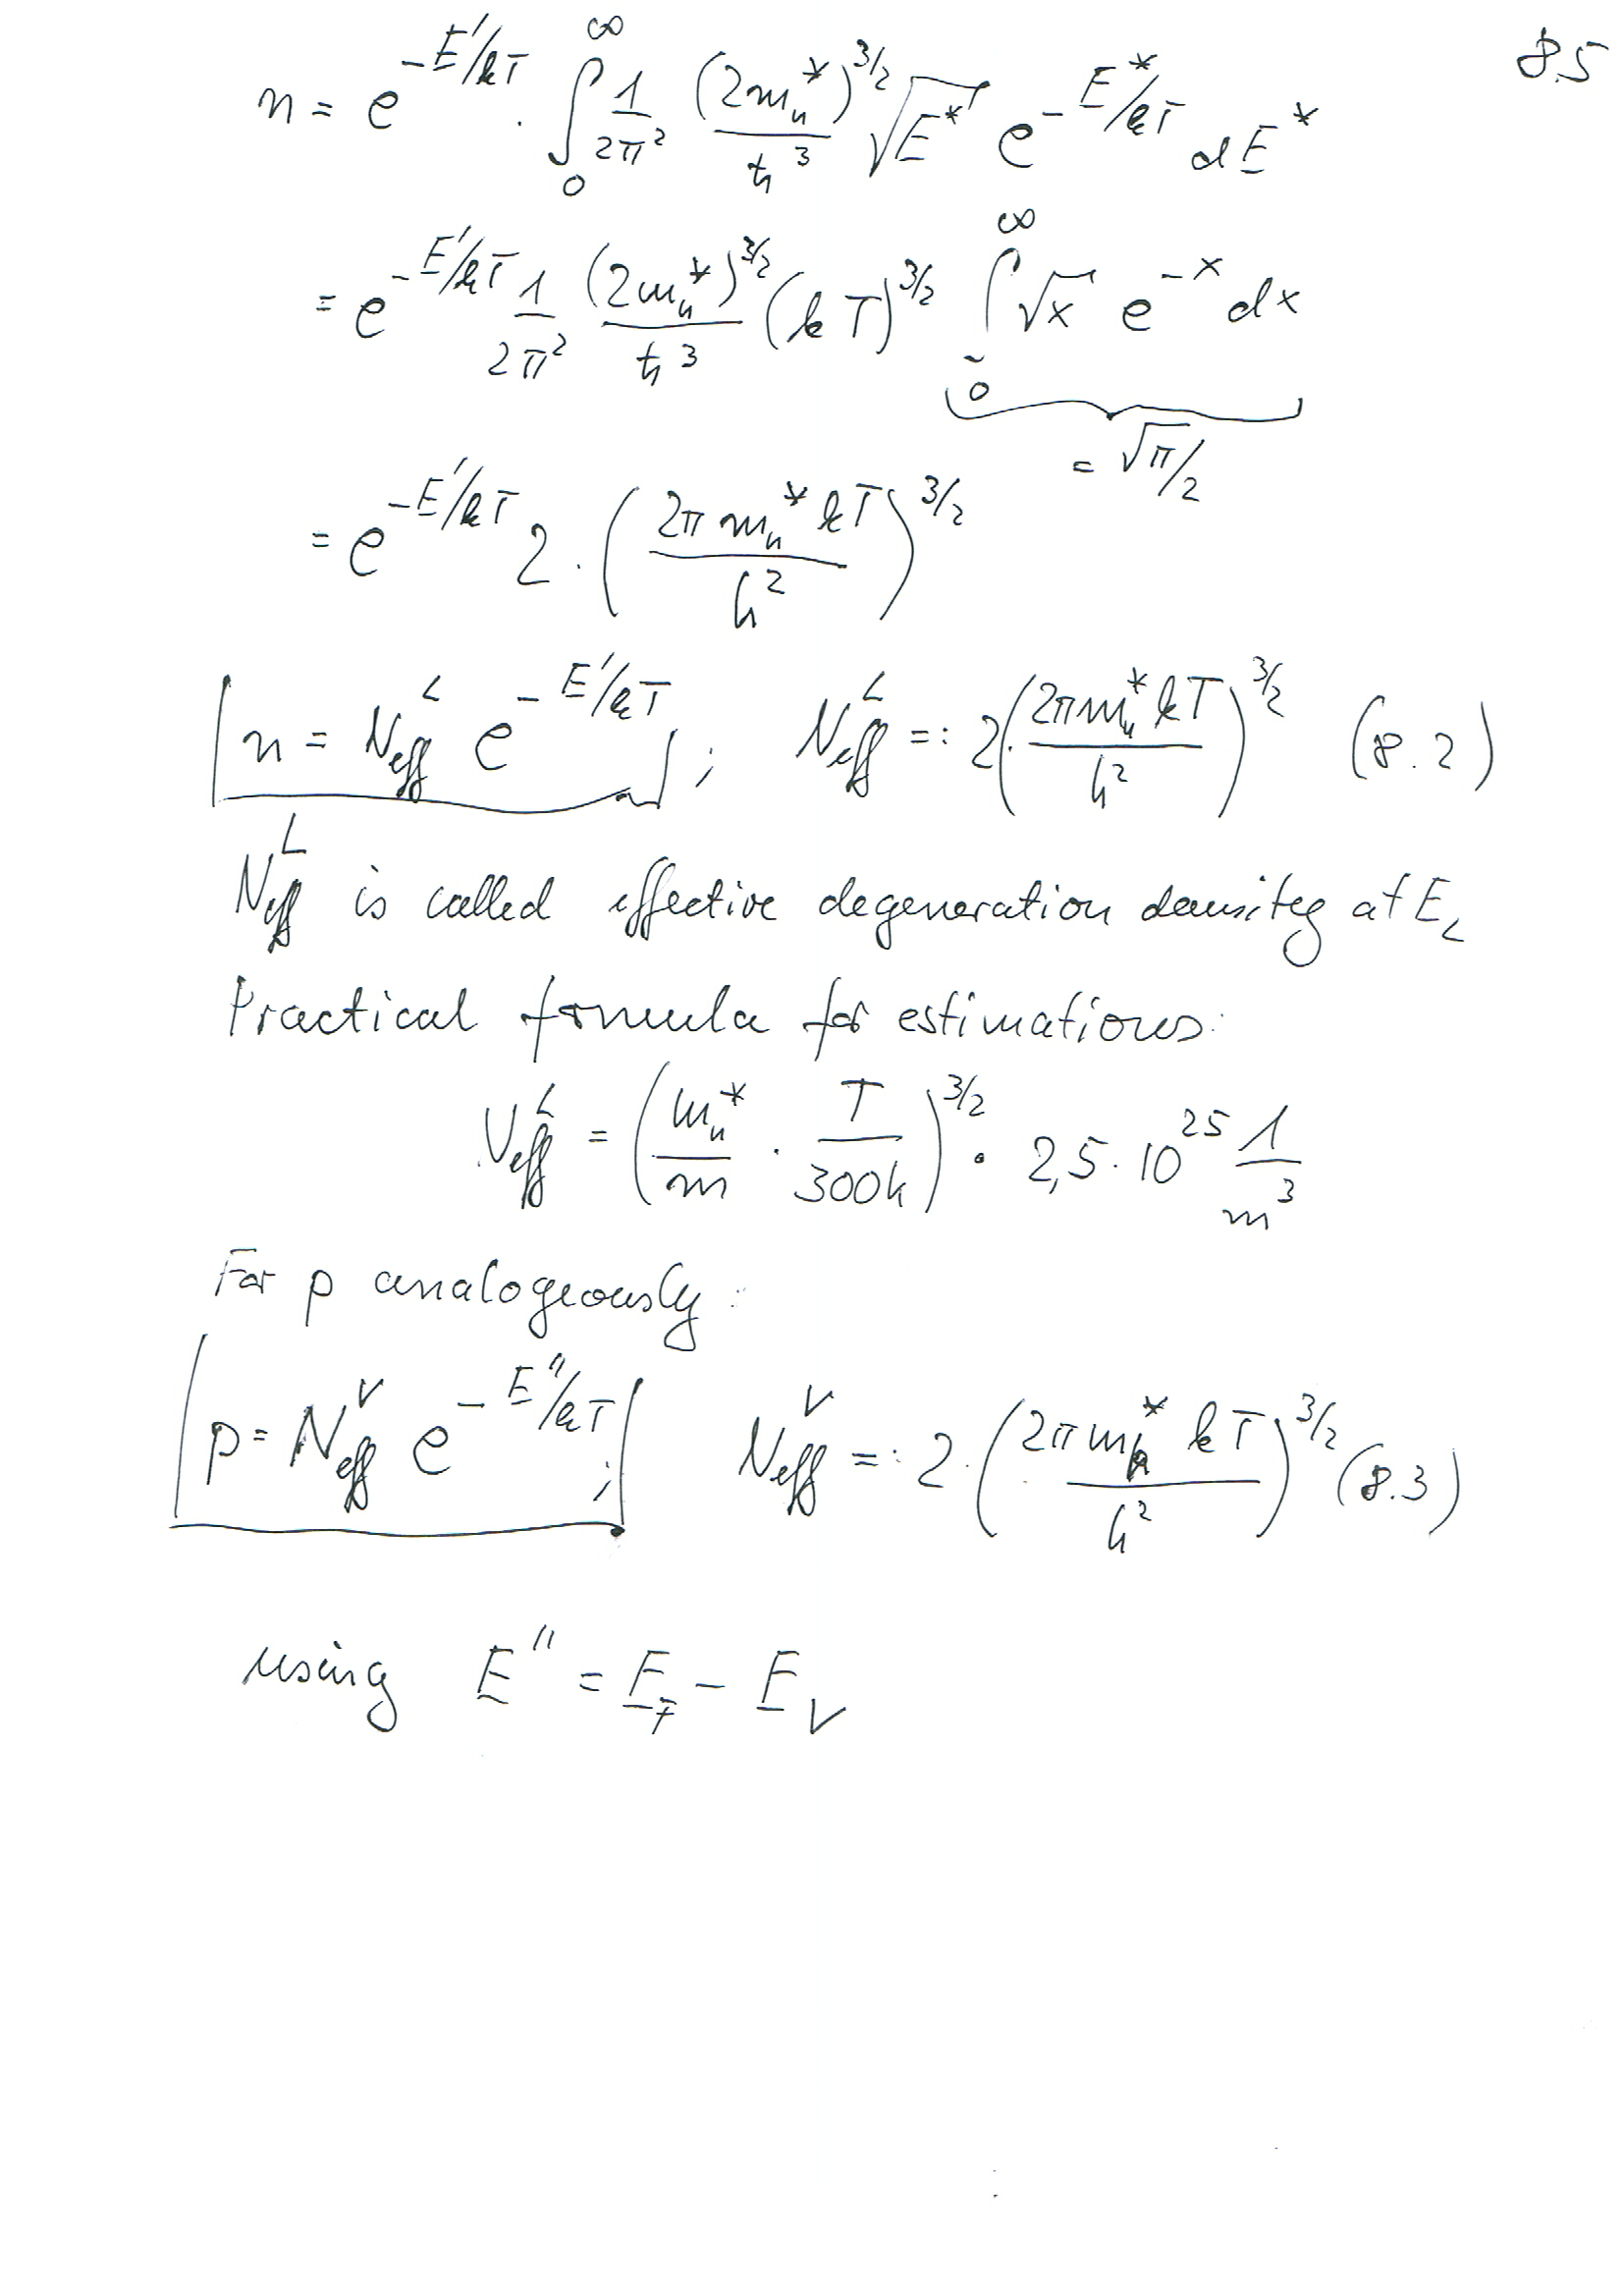 8.5
n = e^{-E'/kT} · ∫_0^∞ 1/(2π²) (2m_n^*)^{3/2}/ħ³ √E^* e^{-E^*/kT} dE^*
= e^{-E'/kT} 1/(2π²) (2m_n^*)^{3/2}/ħ³ (kT)^{3/2} ∫_0^∞ √x e^{-x} dx
= √π/2
= e^{-E'/kT} 2 · (2π m_n^* kT / h²)^{3/2}
n = N_eff^L e^{-E'/kT} ; N_eff^L =: 2 · (2π m_n^* kT / h²)^{3/2} (8.2)
N_eff^L is called effective degeneration density at E_L
Practical formula for estimations:
N_eff^L = (m_n^*/m · T/300K)^{3/2} · 2,5 · 10^{25} 1/m³
For p analogeously:
p = N_eff^V e^{-E''/kT} ; N_eff^V =: 2 · (2π m_p^* kT / h²)^{3/2} (8.3)
using E'' = E_F - E_V